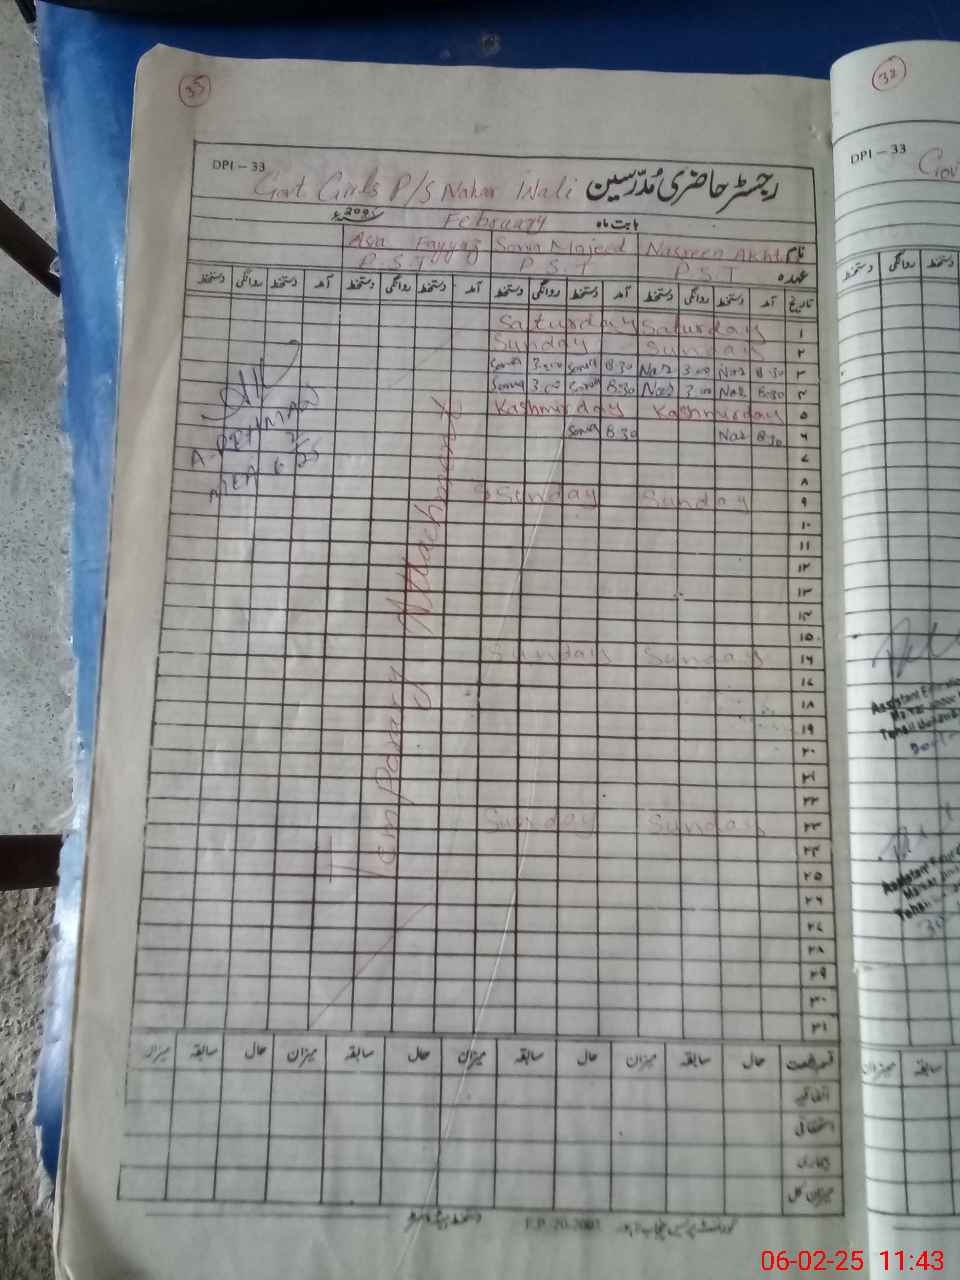 35
DPI – 33
Govt Girls P/S Nahar Wali رجسٹر حاضری مُدرّسین
بابت ماہ February 2025ء
نام Nasreen Akht Sonia Majeed Asn Fayyaz
عہدہ P.S.T P.S.T P.S.T
تاریخ آمد دستخط روانگی دستخط آمد دستخط روانگی دستخط آمد دستخط روانگی دستخط آمد دستخط روانگی دستخط
۱ Saturday Saturday
۲ Sunday Sunday
۳ 8:30 Naz 3:00 Naz 8:30 Sonia 3:00 Sonia
۴ 8:30 Naz 3:00 Naz 8:30 Sonia 3:00 Sonia
۵ Kashmirday Kashmirday
۶ 8:30 Naz 8:30 Sonia
۷
۸
۹ Sunday Sunday
۱۰
۱۱
۱۲
۱۳
۱۴
۱۵
۱۶ Sunday Sunday
۱۷
۱۸
۱۹
۲۰
۲۱
۲۲
۲۳ Sunday Sunday
۲۴
۲۵
۲۶
۲۷
۲۸
۲۹
۳۰
۳۱
Temporary Attachment
A. REHMAN
AEO 6/2/25
قسم رخصت حال سابقہ میزان حال سابقہ میزان حال سابقہ میزان حال سابقہ میزان
اتفاقیہ
استحقاقی
بیماری
میزان کل
32
DPI – 33
Gov
دستخط روانگی دستخط
Assistant Education
Assistant
میزان سابقہ
06-02-25 11:43